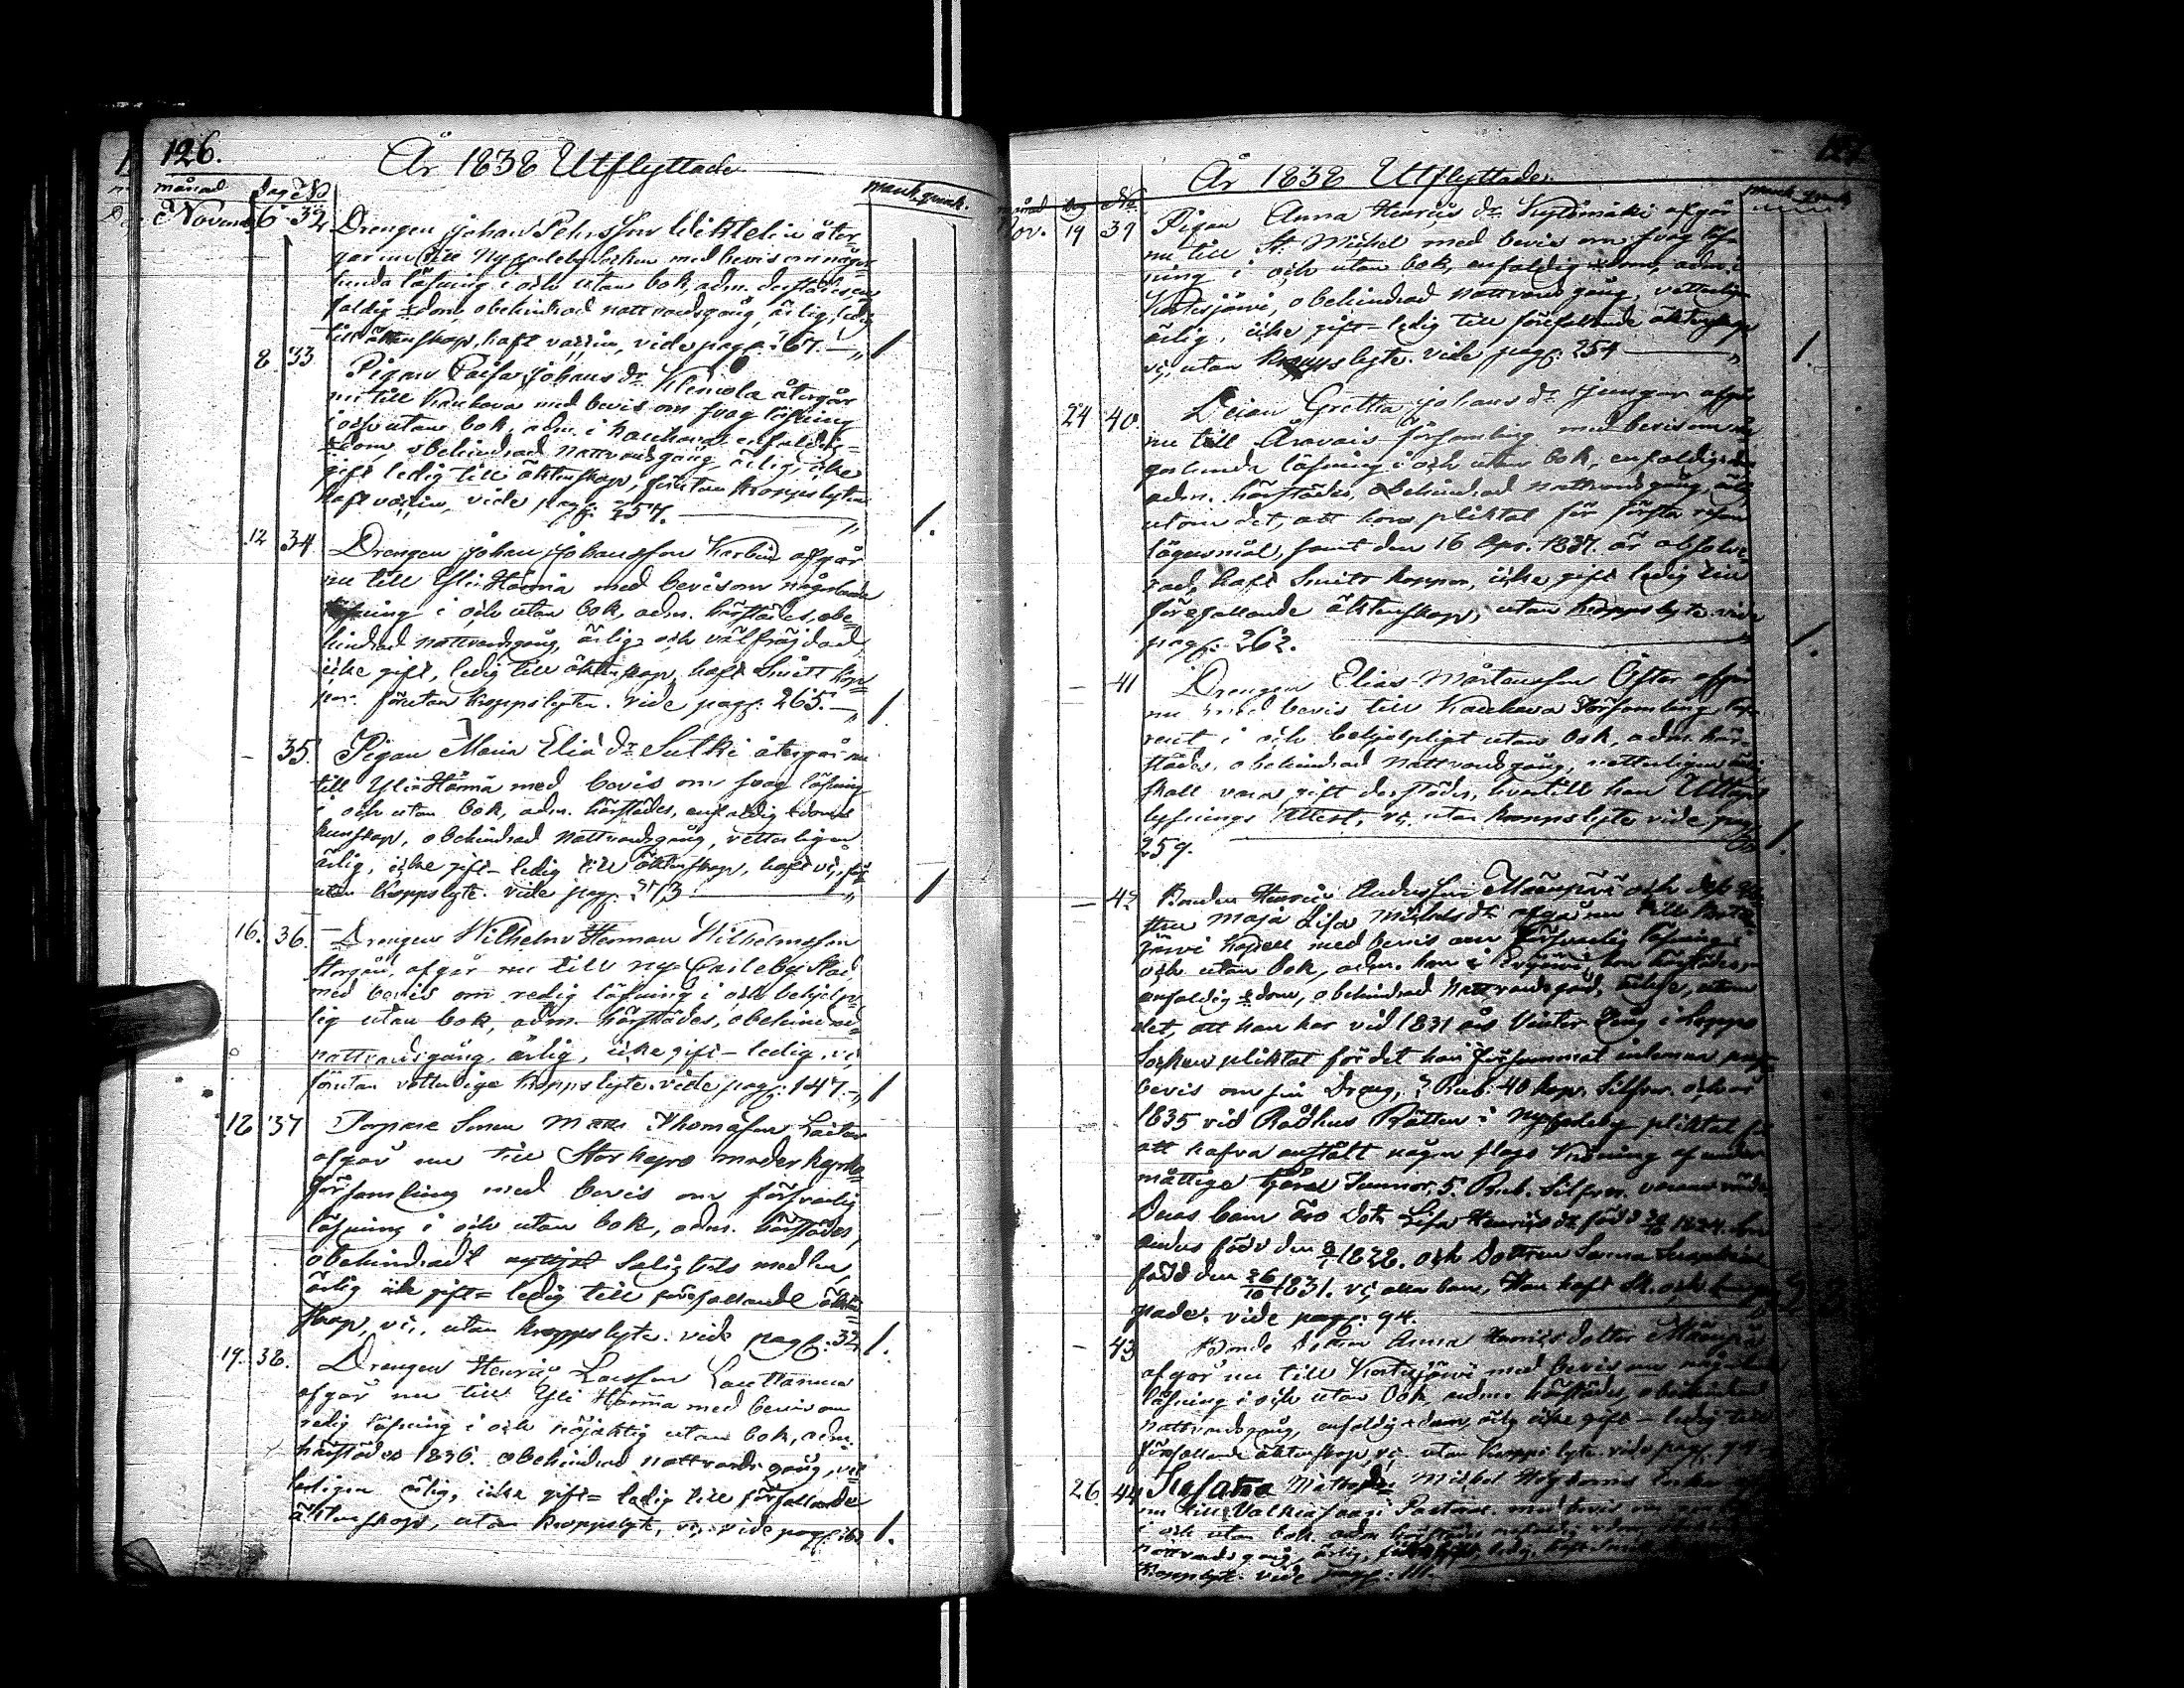 126.
År 1838 Utflyttade
månad Dag No mank. qvink.
Novemb 6 32 Drengen Johan Pehrsson Wiktelin åter=
går nu till Nycarleby Socken med bevis om någor=
lunda läsning i och utan bok, adm. derstädes, en
faldig dom, obehindrad nattvardsgång, ärlig, ledig
till äktenskap, haft vaccin, vide pag. 167. 1
8 33 Pigan Caisa Johans dr Klemola återgår
nu till Kauhava med bevis om svag läsning
i och utan bok, adm. i Kauhava enfaldig
dom, obehindrad nattvardsgång, ärlig, icke
gift ledig till äktenskap, förutan kroppslyten
haft vaccin, vide pag. 257. 1.
12 34. Drengen Johan Johansson Karbin afgår
nu till Yli Härmä med bevis om någorlunda
läsning i och utan bok, adm. härstädes, obe=
hindrad nattvardsgång, ärlig och välfräjdad,
icke gift, ledig till äktenskap, haft Smått kop=
por. förutan Kroppslyten. vide pag. 265. 1
- 35. Pigan Maria Eliæ dr Sulki återgår nu
till Yli-Härmä med bevis om svag läsning
i och utan bok, adm. härstädes, enfaldig dom
kunskap, obehindrad nattvardsgång, vetterligen
ärlig, icke gift - ledig till äktenskap, haft v:, för
utan kroppslyte. vide pag. 273 1
16. 36. Drengen Wilhelm Herman Wilhelmsson
Storgård, afgår nu till ny Carleby Stad
med bevis om redig läsning i och behjelp=
lig utan bok, adm. härstädes, obehindrad
nattvardsgång, ärlig, icke gift - ledig, v:,
förutan vetterlige kroppslyte. vide pag. 147. 1
18 37 Torpare Sonen Matts Thomasson
afgår nu till Storkyro moderkyrko=
församling med bevis om försvarlig
läsning i och utan bok, adm. härstädes,
obehindradt nyttjat Salighets medlen,
ärlig icke gift = ledig till förefallande äkten
skap, v:, utan kroppslyte. vide pag. 32 1.
19. 38. Drengen Henric Larsson Lauttamus
afgår nu till Yli Härmä med bevis om
redig läsning i och nöjaktig utan bok, adm.
härstädes 1836. obehindrad nattvards gång, vet
terligen ärlig, icke gift = ledig till förfallande
äktenskap, utan kroppslyte, v:, vide pag. 1.
År 1838 Utflyttade.
månad Dag No mank. qvink
Nov. 19 39 Pigan Anna Henrics dr Kytömäki afgår
nu till St. Michel med bevis om svag läs=
ning i och utan bok, enfaldig dom, adm. i
Kortesjärvi, obehindrad nattvardsgång, vetterligen
ärlig, icke gift - ledig till förefallande äktenskap
v:, utan kroppslyte. vide pag. 254 1.
24 40. Deian Gretha Johans dr Ljungar afgår
nu till Oravais församling med bevis om nå
gorlunda läsning i och utan bok, enfaldig dom
adm. härstädes, obehindrad nattvardsgång, ärlig
utom det, att hon pliktat för första resan
lägersmål, samt den 16 Apr. 1837. är absolve=
rad, haft Smitt koppor, icke gift ledig till
förefallande äktenskap, utan kroppslyte vide
pag. 262. 1.
- 41 Drengen Elias Mårtensson Öster afgår
nu med bevis till Kauhava Församling, läs
rent i och behjelpligt utan bok, adm. här=
städes. obehindrad nattvardsgång, vetterligen ärlig,
skall vara gift derstädes, hvartill han Uttagit
lysnings Attest, v:, utan kroppslyte vide pag.
259. 1.
- 42 Bonden Henric Andersson Mäenpää och dess Hu
stru Maja Lisa Michelsdr afgår nu till Korte
järvi Kapell med bevis om försvarlig läsning i
och utan bok, adm. han i Evijärvi, hon härstädes,
enfaldig dom, obehindrad nattvardsgång, ärlige, utom
det, att han har vid 1831 års Vinter Ting i Lappo
Socken pliktat för det han försummat inlemna prest
bevis om sin Dräng, 2 Rub. 40 kop. Silfver. och år
1835 vid Rådhus Rätten i nycarleby pliktat för
att hafva anställt någon slags
mättige Junior, 5. Rub. Silfver.
Deras barn äro dotr Lisa Henricsdr född 1824. Son
Anders född den 1828. och Dottren Sanna
född den 26/10 1831. v: alla barn, Han haft
pade. vide pag. 94.
- 43 Bonde Dottren Anna Henrics dotter Mäenpää
afgår nu till Kortesjärvi med bevis om någorlunda
läsning i och utan bok, adm. härstädes, obehindrad
nattvardsgång, enfaldig dom, ärlig icke gift - ledig till
förefallande äktenskap, v:, utan kroppslyte. vide pag. 94
26. 44 Michel
nu till Valkeasaari Pastorat. med bevis om
i och utan bok. adm. härstädes enfaldig dom,
nattvardsgång, ärlig, ledig, haft
kroppslyte. vide pag. 111.